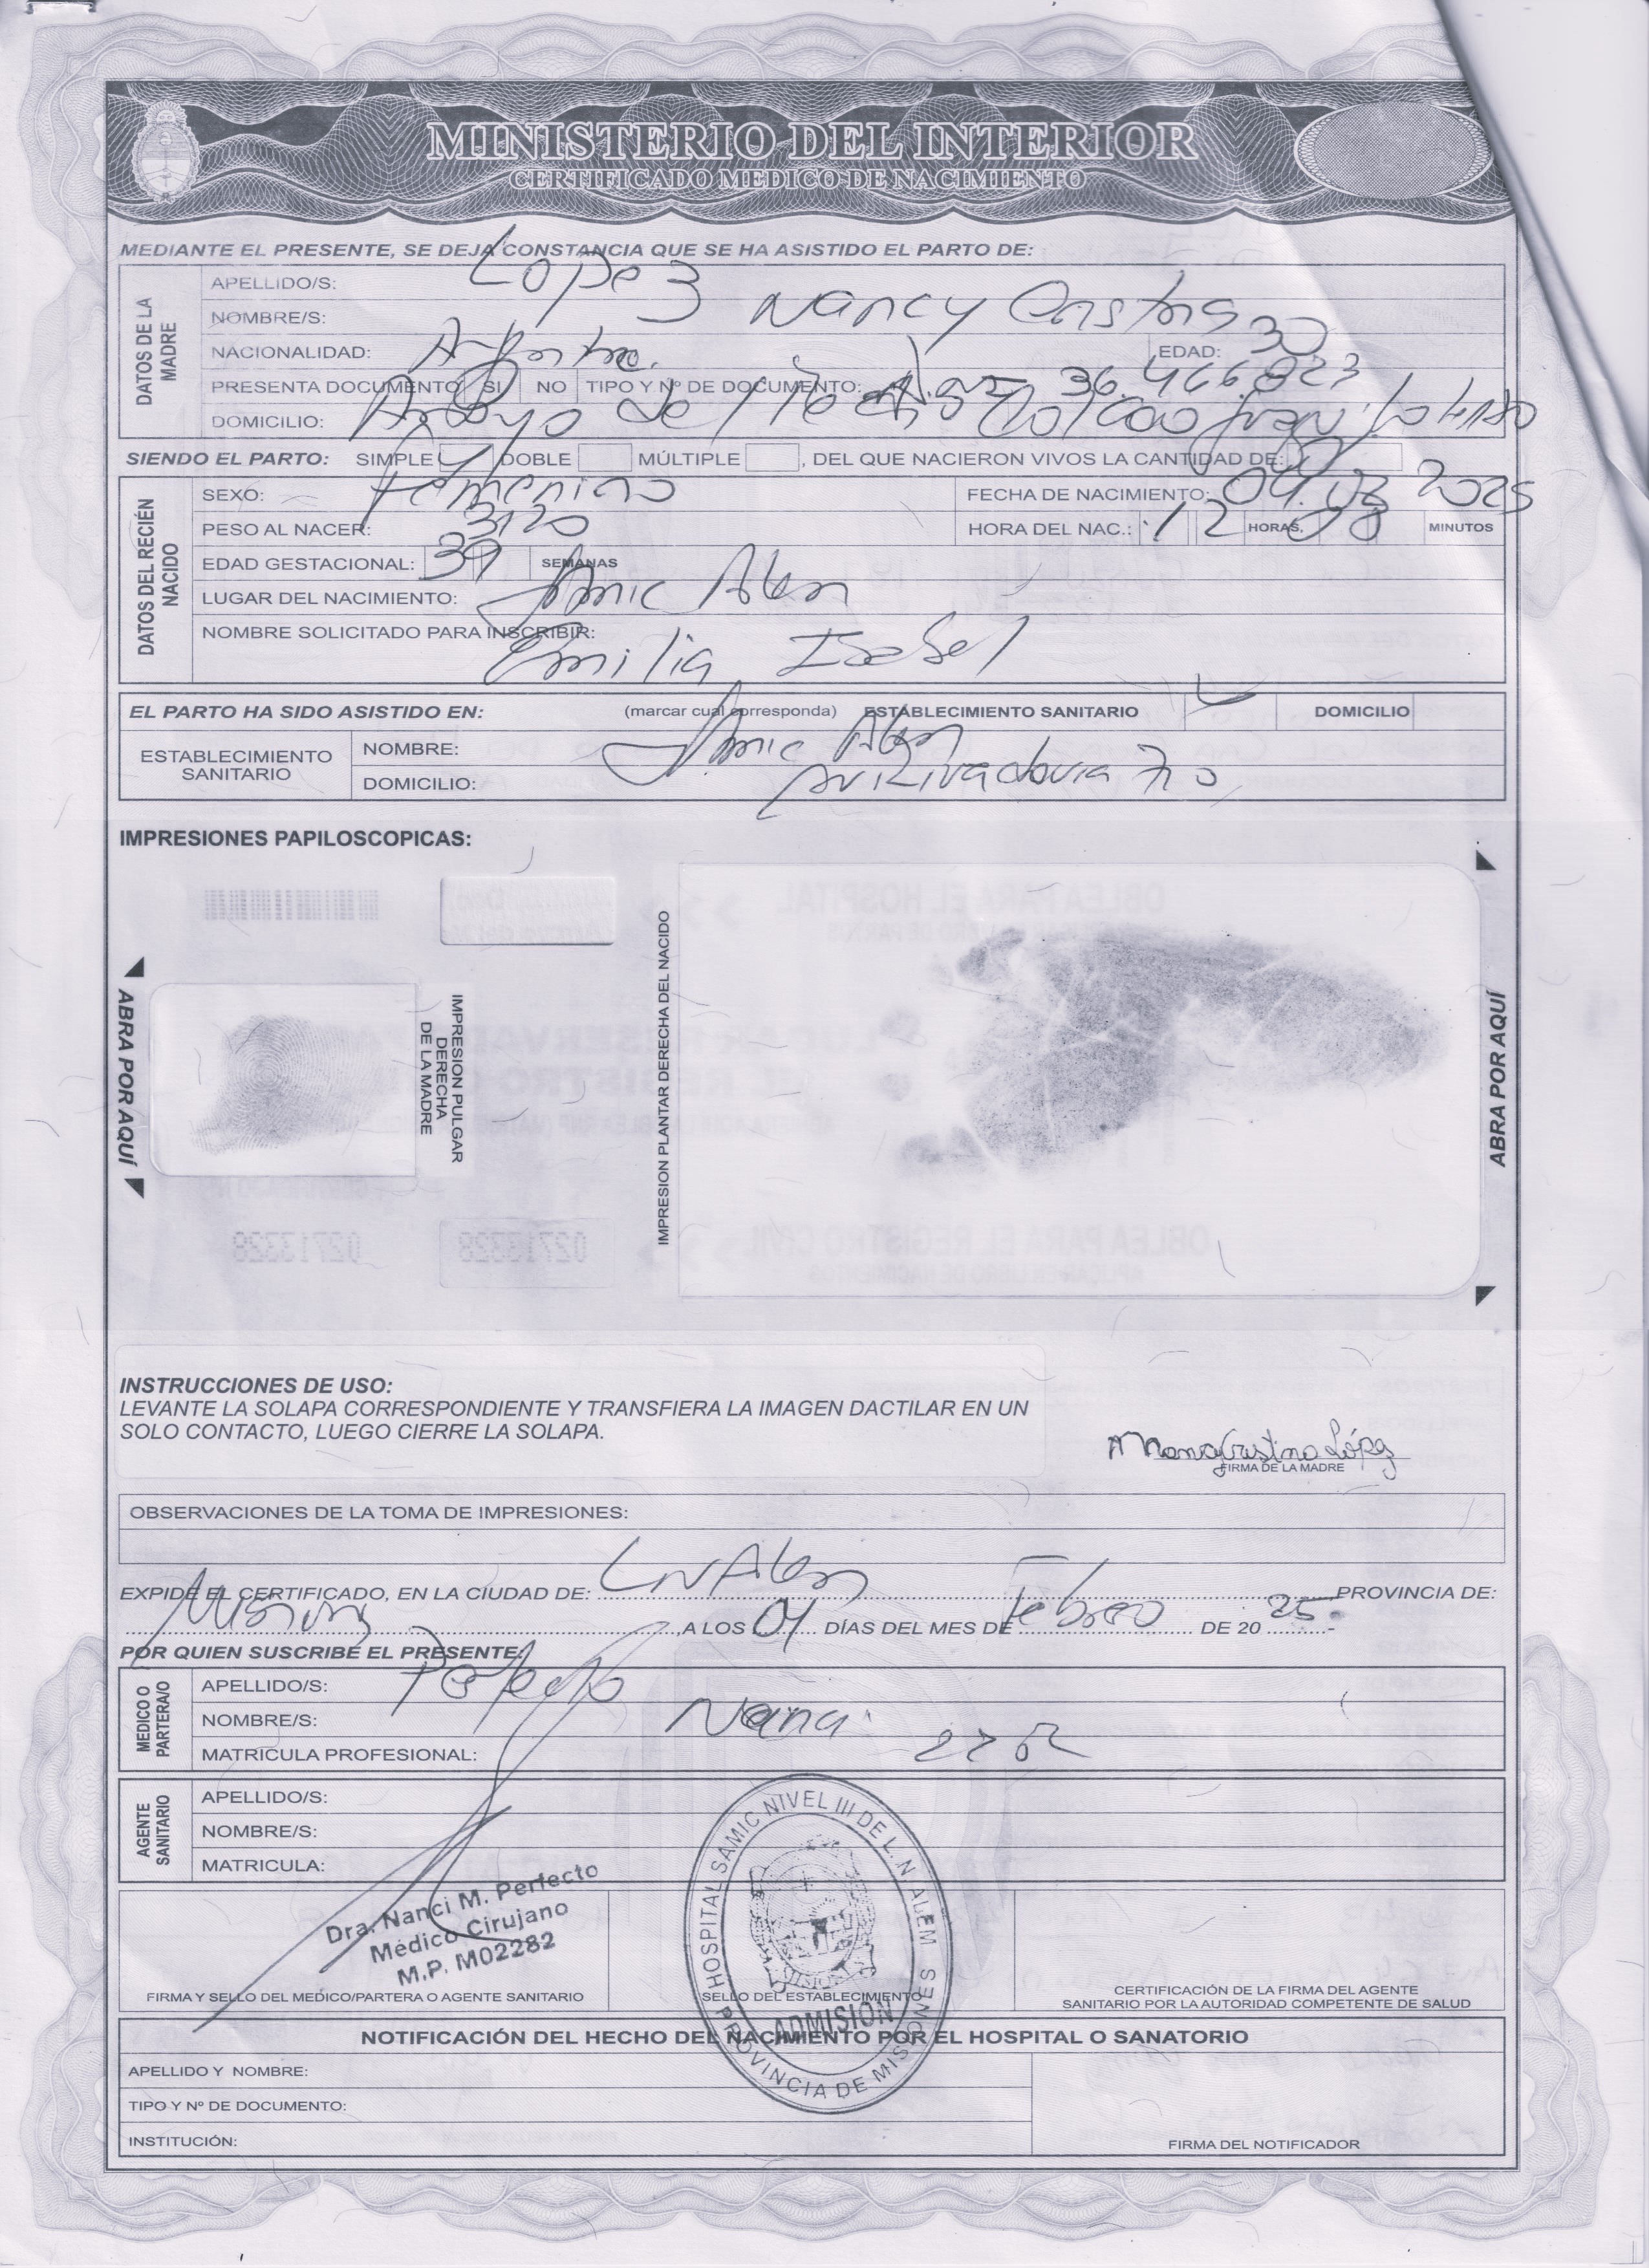 MINISTERIO DEL INTERIOR
CERTIFICADO MEDICO DE NACIMIENTO
MEDIANTE EL PRESENTE, SE DEJA CONSTANCIA QUE SE HA ASISTIDO EL PARTO DE:
DATOS DE LA MADRE
APELLIDO/S: Lopez
NOMBRE/S: Nancy Cristina
NACIONALIDAD: Argentina. EDAD: 30
PRESENTA DOCUMENTO SI NO TIPO Y Nº DE DOCUMENTO: 36.466.823
DOMICILIO: Arroyo del Medio
SIENDO EL PARTO: SIMPLE DOBLE MÚLTIPLE , DEL QUE NACIERON VIVOS LA CANTIDAD DE:
DATOS DEL RECIÉN NACIDO
SEXO: Femenino FECHA DE NACIMIENTO: 2025
PESO AL NACER: 3120 HORA DEL NAC.: 12 HORAS, 08 MINUTOS
EDAD GESTACIONAL: 39 SEMANAS
LUGAR DEL NACIMIENTO: Samic Alem
NOMBRE SOLICITADO PARA INSCRIBIR: Emilia Isabel
EL PARTO HA SIDO ASISTIDO EN: (marcar cual corresponda) ESTABLECIMIENTO SANITARIO DOMICILIO
ESTABLECIMIENTO SANITARIO
NOMBRE: Samic Alem
DOMICILIO: Av Rivadavia 710
IMPRESIONES PAPILOSCOPICAS:
ABRA POR AQUÍ
IMPRESION PULGAR DERECHA DE LA MADRE
IMPRESION PLANTAR DERECHA DEL NACIDO
ABRA POR AQUÍ
02713328 02713328
INSTRUCCIONES DE USO:
LEVANTE LA SOLAPA CORRESPONDIENTE Y TRANSFIERA LA IMAGEN DACTILAR EN UN
SOLO CONTACTO, LUEGO CIERRE LA SOLAPA.
FIRMA DE LA MADRE
OBSERVACIONES DE LA TOMA DE IMPRESIONES:
EXPIDE EL CERTIFICADO, EN LA CIUDAD DE: LN Alem PROVINCIA DE:
Misiones, A LOS 04 DÍAS DEL MES DE Febrero DE 20 25.-
POR QUIEN SUSCRIBE EL PRESENTE:
MEDICO O PARTERA/O
APELLIDO/S: Perfecto
NOMBRE/S: Nanci
MATRICULA PROFESIONAL:
AGENTE SANITARIO
APELLIDO/S:
NOMBRE/S:
MATRICULA:
Dra. Nanci M. Perfecto
Médico Cirujano
M.P. M02282
FIRMA Y SELLO DEL MEDICO/PARTERA O AGENTE SANITARIO
HOSPITAL SAMIC NIVEL III DE L. N. ALEM
PROVINCIA DE MISIONES
MISIONES
ADMISIÓN
SELLO DEL ESTABLECIMIENTO
CERTIFICACIÓN DE LA FIRMA DEL AGENTE
SANITARIO POR LA AUTORIDAD COMPETENTE DE SALUD
NOTIFICACIÓN DEL HECHO DEL NACIMIENTO POR EL HOSPITAL O SANATORIO
APELLIDO Y NOMBRE:
TIPO Y Nº DE DOCUMENTO:
INSTITUCIÓN:
FIRMA DEL NOTIFICADOR